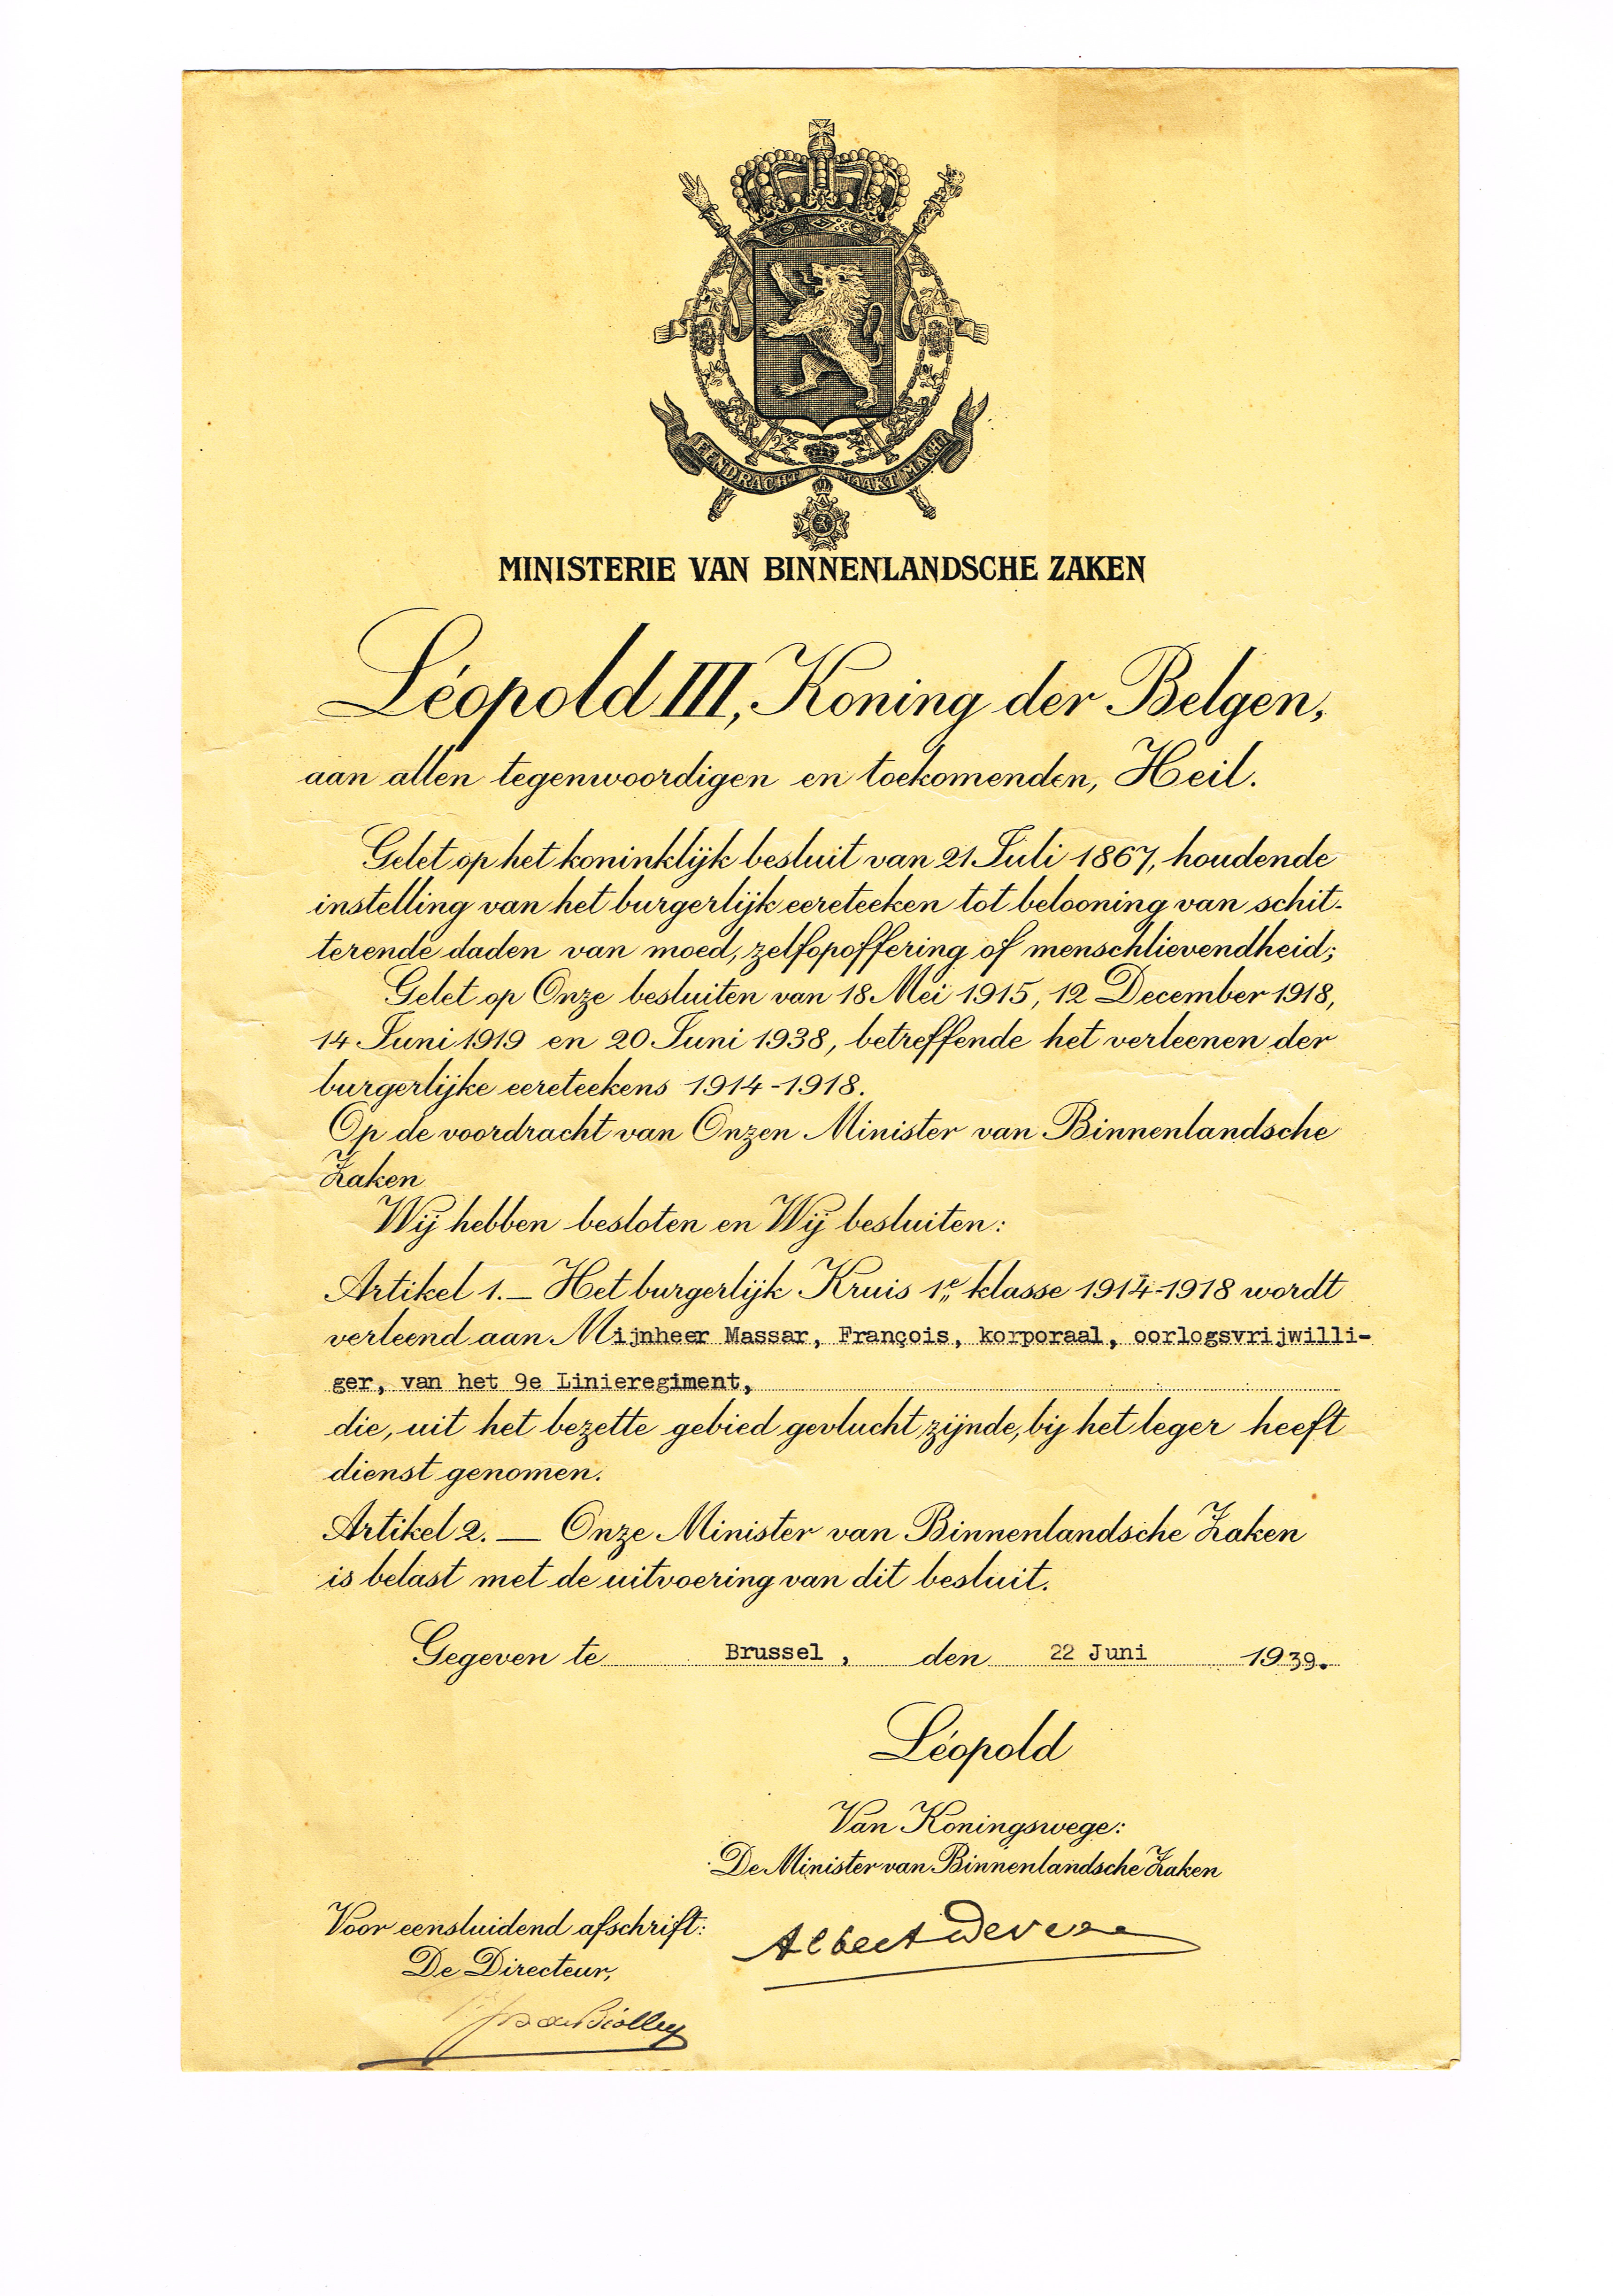 EENDRACHT MAAKT MACHT
MINISTERIE VAN BINNENLANDSCHE ZAKEN
Léopold III, Koning der Belgen,
aan allen tegenwoordigen en toekomenden, Heil.
Gelet op het koninklijk besluit van 21 Juli 1867, houdende
instelling van het burgerlijk eereteeken tot belooning van schit-
terende daden van moed, zelfopoffering of menschlievendheid;
Gelet op Onze besluiten van 18 Mei 1915, 12 December 1918,
14 Juni 1919 en 20 Juni 1938, betreffende het verleenen der
burgerlijke eereteekens 1914-1918.
Op de voordracht van Onzen Minister van Binnenlandsche
Zaken
Wij hebben besloten en Wij besluiten:
Artikel 1. — Het burgerlijk Kruis 1e klasse 1914-1918 wordt
verleend aan Mijnheer Massar, François, korporaal, oorlogsvrijwilli-
ger, van het 9e Linieregiment,
die, uit het bezette gebied gevlucht zijnde, bij het leger heeft
dienst genomen.
Artikel 2. — Onze Minister van Binnenlandsche Zaken
is belast met de uitvoering van dit besluit.
Gegeven te Brussel, den 22 Juni 1939.
Léopold
Van Koningswege:
De Minister van Binnenlandsche Zaken
Voor eensluidend afschrift:
Albert Devèze
De Directeur,
de Biolley